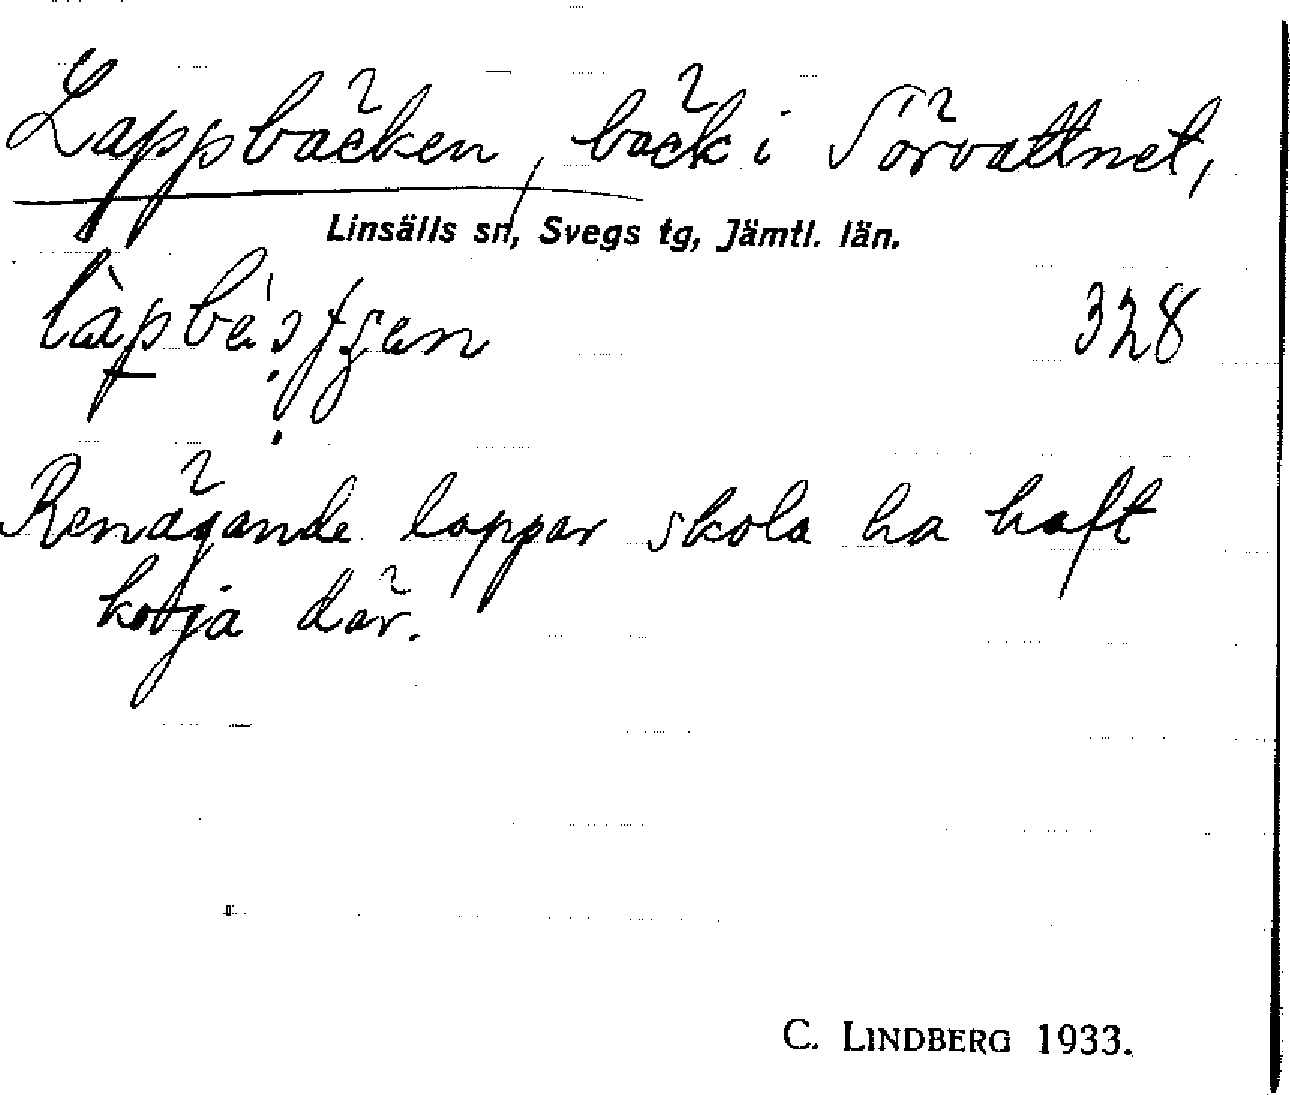 Lappbäcken, bäck i Sörvattnet,
Linsälls sn, Svegs tg, Jämtl. län.
328
Renägande lappar skola ha haft
kotja där.
C. LINDBERG 1933.